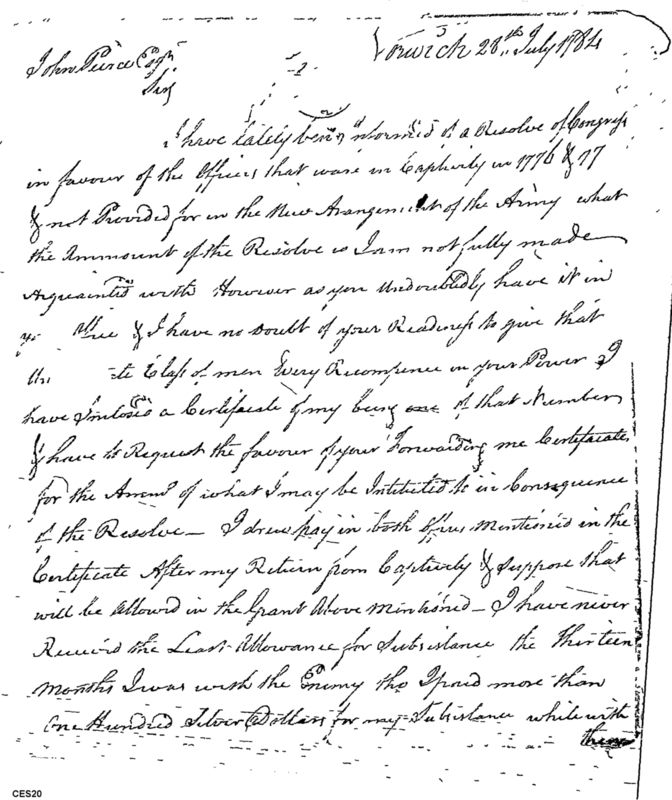 Norwich 28th July 1784
John Pierce Esqr
Sir
I have lately been informed of a Resolve of Congress
in favour of the Officers that ware in Captivity in 1776 & 77
& not Provided for in the New Arangement of the Army what
the Ammount of the Resolve is I am not fully made
Acquainted with However as you Undoubtedly have it in
& I have no Doubt of your Readiness to give that
Class of men Every Recompence in your Power I
have Inclosed a Certificate of my being one of that Number
& have to Request the favour of your Forwarding me Certificates
for the Amount of what I may be Intitled to in Consequence
of the Resolve – I drew pay in both offices Mentioned in the
Certificate After my Return from Captivity & Suppose that
will be Allowed in the Grant Above Mentioned – I have never
Received the Least Allowance for Subsistance the thirteen
Months I was with the Enemy tho I paid more than
One Hundred Silver Dollars for my Subsistance while with
them
CES20